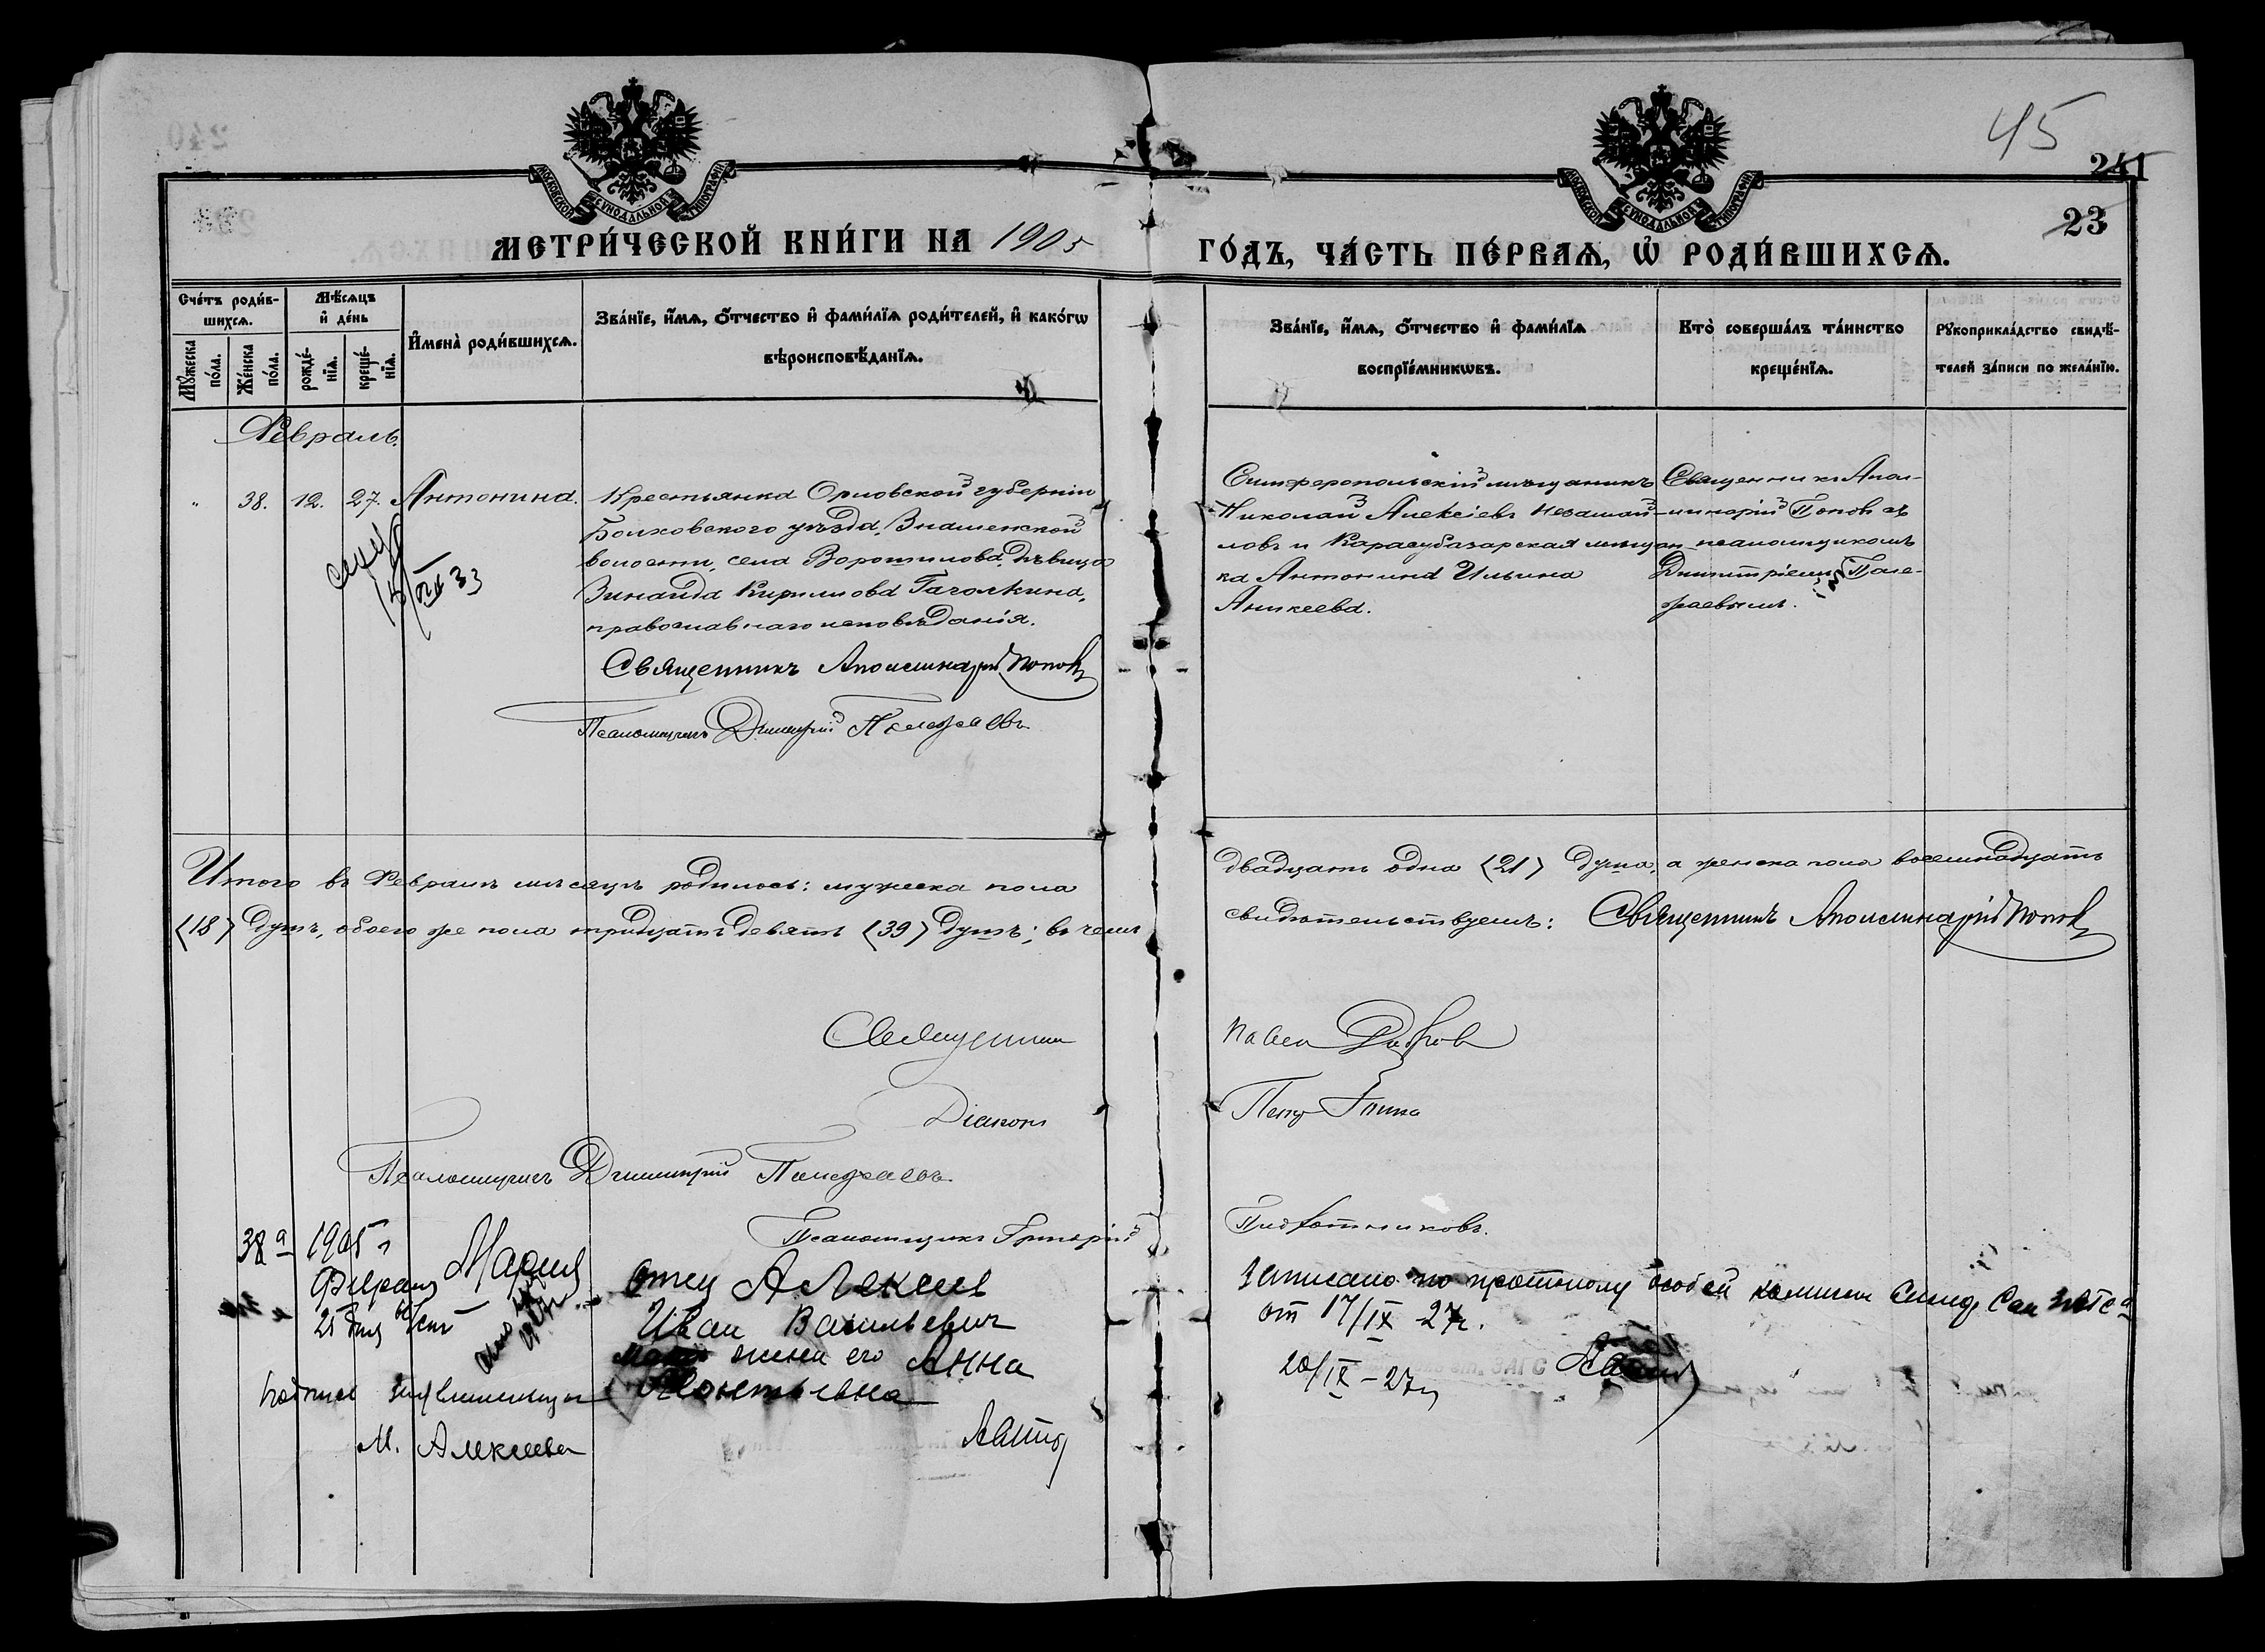 45
241
23
МОСКОВСКОЙ СѴНОДАЛЬНОЙ ТИПОГРАФІИ
МОСКОВСКОЙ СѴНОДАЛЬНОЙ ТИПОГРАФІИ
МЕТРИ́ЧЕСКОЙ КНИ́ГИ НА 1905
ГО́ДЪ, ЧА́СТЬ ПЕ́РВАѦ, Ѡ҆ РОДИ́ВШИХСѦ.
Сче́тъ роди́в-
шихсѧ.
Мѣ́сѧцъ
и҆ де́нь
Мꙋ́жеска по́ла.
Же́нска по́ла.
рожде́-
нїѧ.
креще́-
нїѧ.
И҆мена̀ роди́вшихсѧ.
Зва́нїе, и҆́мѧ, ѻ҆́тчество и҆ фами́лїѧ роди́телей, и҆ како́гѡ
вѣроисповѣ́данїѧ.
Зва́нїе, и҆́мѧ, ѻ҆́тчество и҆ фами́лїѧ
воспрїе́мникѡвъ.
Кто̀ соверша́лъ та́инство
креще́нїѧ.
Рꙋкоприкла́дство свидѣ́-
телей за́писи по жела́нїю.
Февраль.
" 38. 12. 27. Антонина.
Крестьянка Орловской губерніи
Болховского уѣзда, Знаменской
волости, села Воротилова, дѣвица
Зинаида Кириллова Гаголкина,
православнаго исповѣданія.
Священникъ Аполлинарій Поповъ
Псаломщикъ Димитрій Полежаевъ
Симферопольскій мѣщанинъ
Николай Алексіевъ Незамай-
ловъ и Карасубазарская мѣщан-
ка Антонина Ильина
Аникеева.
Священникъ Апол-
линарій Поповъ съ
псаломщикомъ
Димитріемъ Поле-
жаевымъ.
Итого въ Февралѣ мѣсяцѣ родилось: мужеска пола
двадцать одна (21) душа, а женска пола восемнадцать
(18) душъ, обоего же пола тридцать девять (39) душъ; въ чемъ
свидѣтельствуемъ: Священникъ Аполлинарій Поповъ
Священникъ
Павел
Діаконъ
Петръ
Псаломщикъ Димитрій Полежаевъ.
Псаломщикъ Григорій
38а 1905 г
Февраля
25 дня
Мария
отец Алексеев
Иван Васильевич
жена его Анна
Леонтьевна
Подпись заявительницы
М. Алексеева
Записано по протоколу особой комиссии Симф
от 17/IX 27г.
20/IX-27г